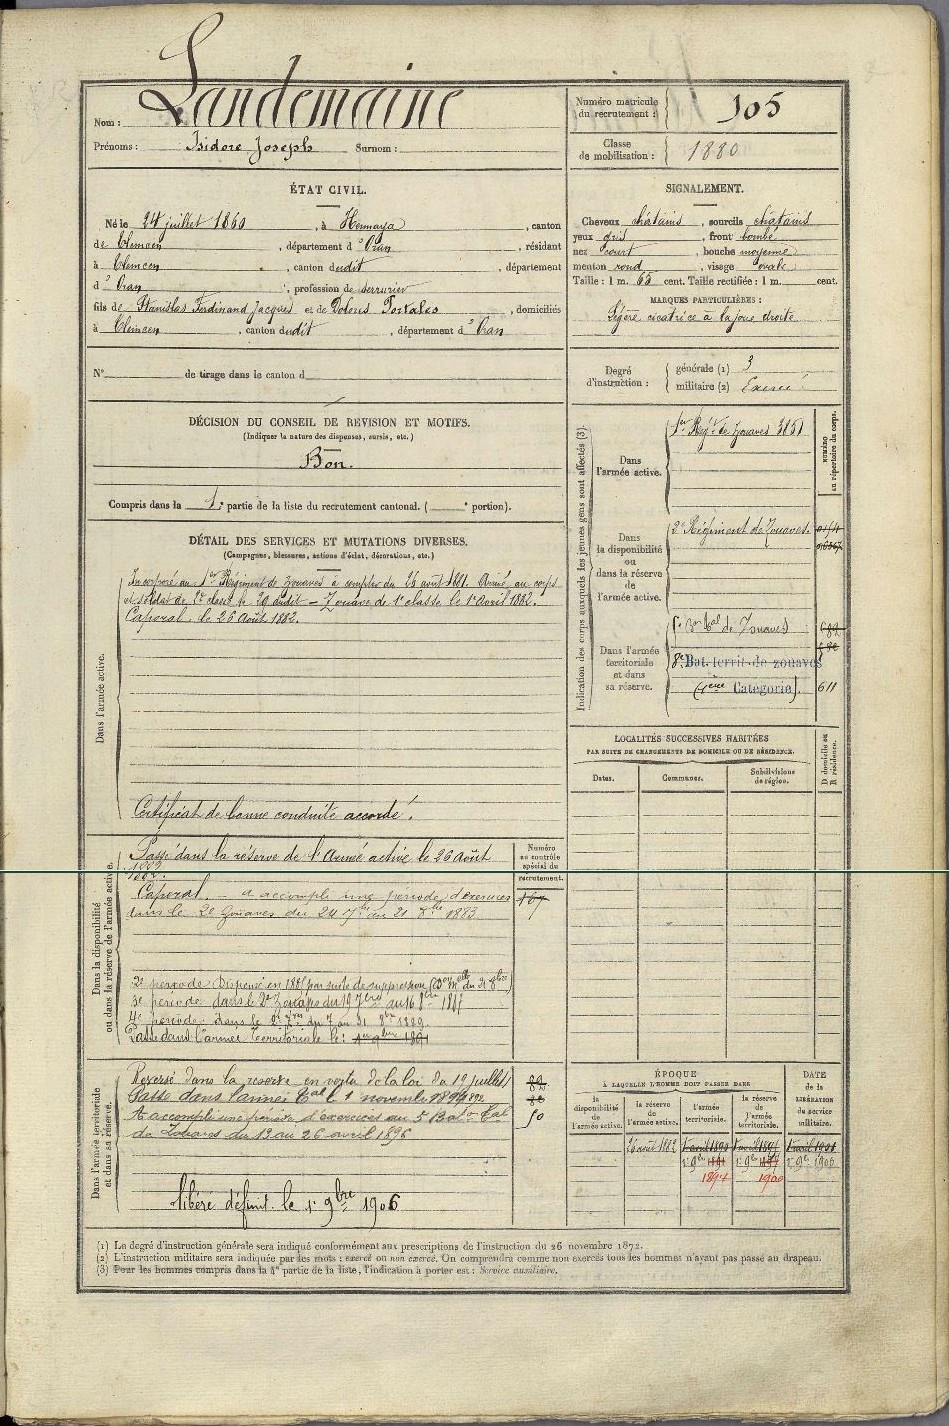 Nom : Landemaine
Prénoms : Isidore Joseph Surnom :
Numéro matricule
du recrutement : 105
Classe
de mobilisation : 1880
ÉTAT CIVIL.
Né le 24 juillet 1860, à Hennaya, canton
de Tlemcen, département d'Oran, résidant
à Tlemcen, canton dudit, département
d'Oran, profession de serrurier
fils de Stanislas Ferdinand Jacques et de Dolorès Portalès, domiciliés
à Tlemcen, canton dudit, département d'Oran
N° de tirage dans le canton d
SIGNALEMENT.
Cheveux châtains, sourcils châtains
yeux gris, front bombé
nez court, bouche moyenne
menton rond, visage ovale
Taille : 1 m. 65 cent. Taille rectifiée : 1 m. cent.
MARQUES PARTICULIÈRES :
Légère cicatrice à la joue droite
Degré
d'instruction :
générale (1) 3
militaire (2) Exercé
DÉCISION DU CONSEIL DE REVISION ET MOTIFS.
(Indiquer la nature des dispenses, sursis, etc.)
Bon.
Compris dans la 1e partie de la liste du recrutement cantonal. ( e portion).
DÉTAIL DES SERVICES ET MUTATIONS DIVERSES.
(Campagnes, blessures, actions d'éclat, décorations, etc.)
Dans l'armée active.
Incorporé au 1er Régiment de zouaves à compter du 23 août 1881. Arrivé au corps
et soldat de 2e classe le 29 dudit – Zouave de 1e classe le 1er Avril 1882.
Caporal le 26 Août 1882.
Certificat de bonne conduite accordé.
Indication des corps auxquels les jeunes gens sont affectés (3).
NUMÉRO
au répertoire du corps.
Dans
l'armée active.
1er Régt de Zouaves 3851
Dans
la disponibilité
ou
dans la réserve
de
l'armée active.
2e Régiment de Zouaves.
Dans l'armée
territoriale
et dans
sa réserve.
Bal de Zouaves
682
8e Bat. territ. de zouaves
(1ère Categorie). 611
LOCALITÉS SUCCESSIVES HABITÉES
PAR SUITE DE CHANGEMENTS DE DOMICILE OU DE RÉSIDENCE.
Dates.
Communes.
Subdivisions
de région.
D domicile ou
R résidence.
Dans la disponibilité
ou dans la réserve de l'armée active.
Numéro
au contrôle
spécial du
recrutement.
Passé dans la réserve de l'Armée active le 26 Août
1882.
Caporal. – A accompli une période d'exercices
dans le 2e Zouaves du 24 7bre au 21 8bre 1883
167
2e période Dispensé en 1885 par suite de suppression
3e période dans le 2e Zouaves du 19 7bre au 16 8bre
4e période dans le 2e Zves du 7 au 31 8bre 1889
Passé dans l'armée Territoriale le : 1er 9bre 1891
Dans l'armée territoriale
et dans sa réserve.
Reversé dans la reserve en vertu de la loi du 19 juillet
Passé dans l'armée Tale le 1 novembre 1894 892
A accompli une période d'exercices au 5 Baton Tal
de Zouaves du 13 au 26 avril 1896
50
libéré définit. le 1er 9bre 1906
ÉPOQUE
À LAQUELLE L'HOMME DOIT PASSER DANS
la
disponibilité
de
l'armée active.
la réserve
de
l'armée active.
l'armée
territoriale.
la réserve
de l'armée
territoriale.
DATE
de la
LIBÉRATION
du service
militaire.
26 août 1882
1er 9bre 1891
1er 9bre 1897
1er 9bre 1906
1894
1900
(1) Le degré d'instruction générale sera indiqué conformément aux prescriptions de l'instruction du 26 novembre 1872.
(2) L'instruction militaire sera indiquée par les mots : exercé ou non exercé. On comprendra comme non exercés tous les hommes n'ayant pas passé au drapeau.
(3) Pour les hommes compris dans la 4e partie de la liste, l'indication à porter est : Service auxiliaire.